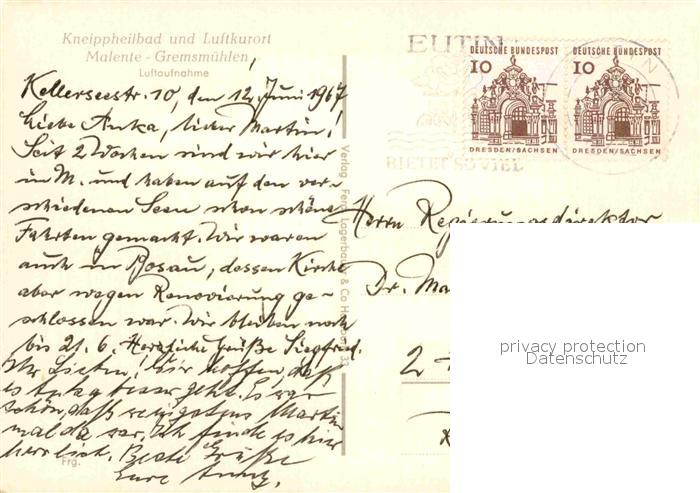 Kneippheilbad und Luftkurort
Malente - Gremsmühlen
Luftaufnahme
Kellerseestr. 10, den 12. Juni 1967
Liebe Anka, lieber Martin!
Seit 2 Wochen sind wir hier
in M. und haben auf den ver-
schiedenen Seen schon schöne
Fahrten gemacht. Wir waren
auch in Bosau, dessen Kirche
aber wegen Renovierung ge-
schlossen war. Wir bleiben noch
bis 21. 6. Herzliche Grüße Siegfried.
Ihr Lieben! Wir hoffen, daß
es Anka besser geht. Es war
schön, daß wenigstens Martin
mal da war. Ich finde es hier
herrlich. Beste Grüße
Eure
Frg.
Verlag Ferd. Lagerbauer & Co
EUTIN
BIETET SO VIEL
DEUTSCHE BUNDESPOST
10
DRESDEN/SACHSEN
DEUTSCHE BUNDESPOST
10
DRESDEN/SACHSEN
Herrn Regierungsdirektor
Dr. Ma
2
privacy protection
Datenschutz